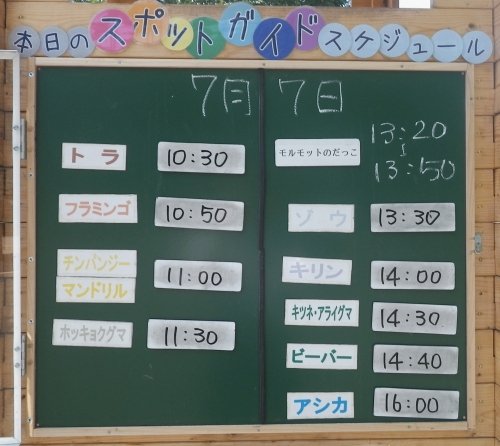 本日のスポットガイドスケジュール
7月 7日
トラ 10:30
フラミンゴ 10:50
チンパンジー
マンドリル 11:00
ホッキョクグマ 11:30
モルモットのだっこ 13:20
〜
13:50
ゾウ 13:30
キリン 14:00
キツネ・アライグマ 14:30
ビーバー 14:40
アシカ 16:00